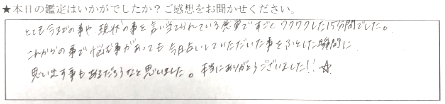 ★本日の鑑定はいかがでしたか?ご感想をお聞かせください。
とても今までの事や現状の事を言い当てられている感覚ですごくワクワクした15分間でした。
これからの事で悩む事があっても今日占いしていただいた事をふとした瞬間に
思い出す事もあるだろうなと思いました。本当にありがとうございました!!☆